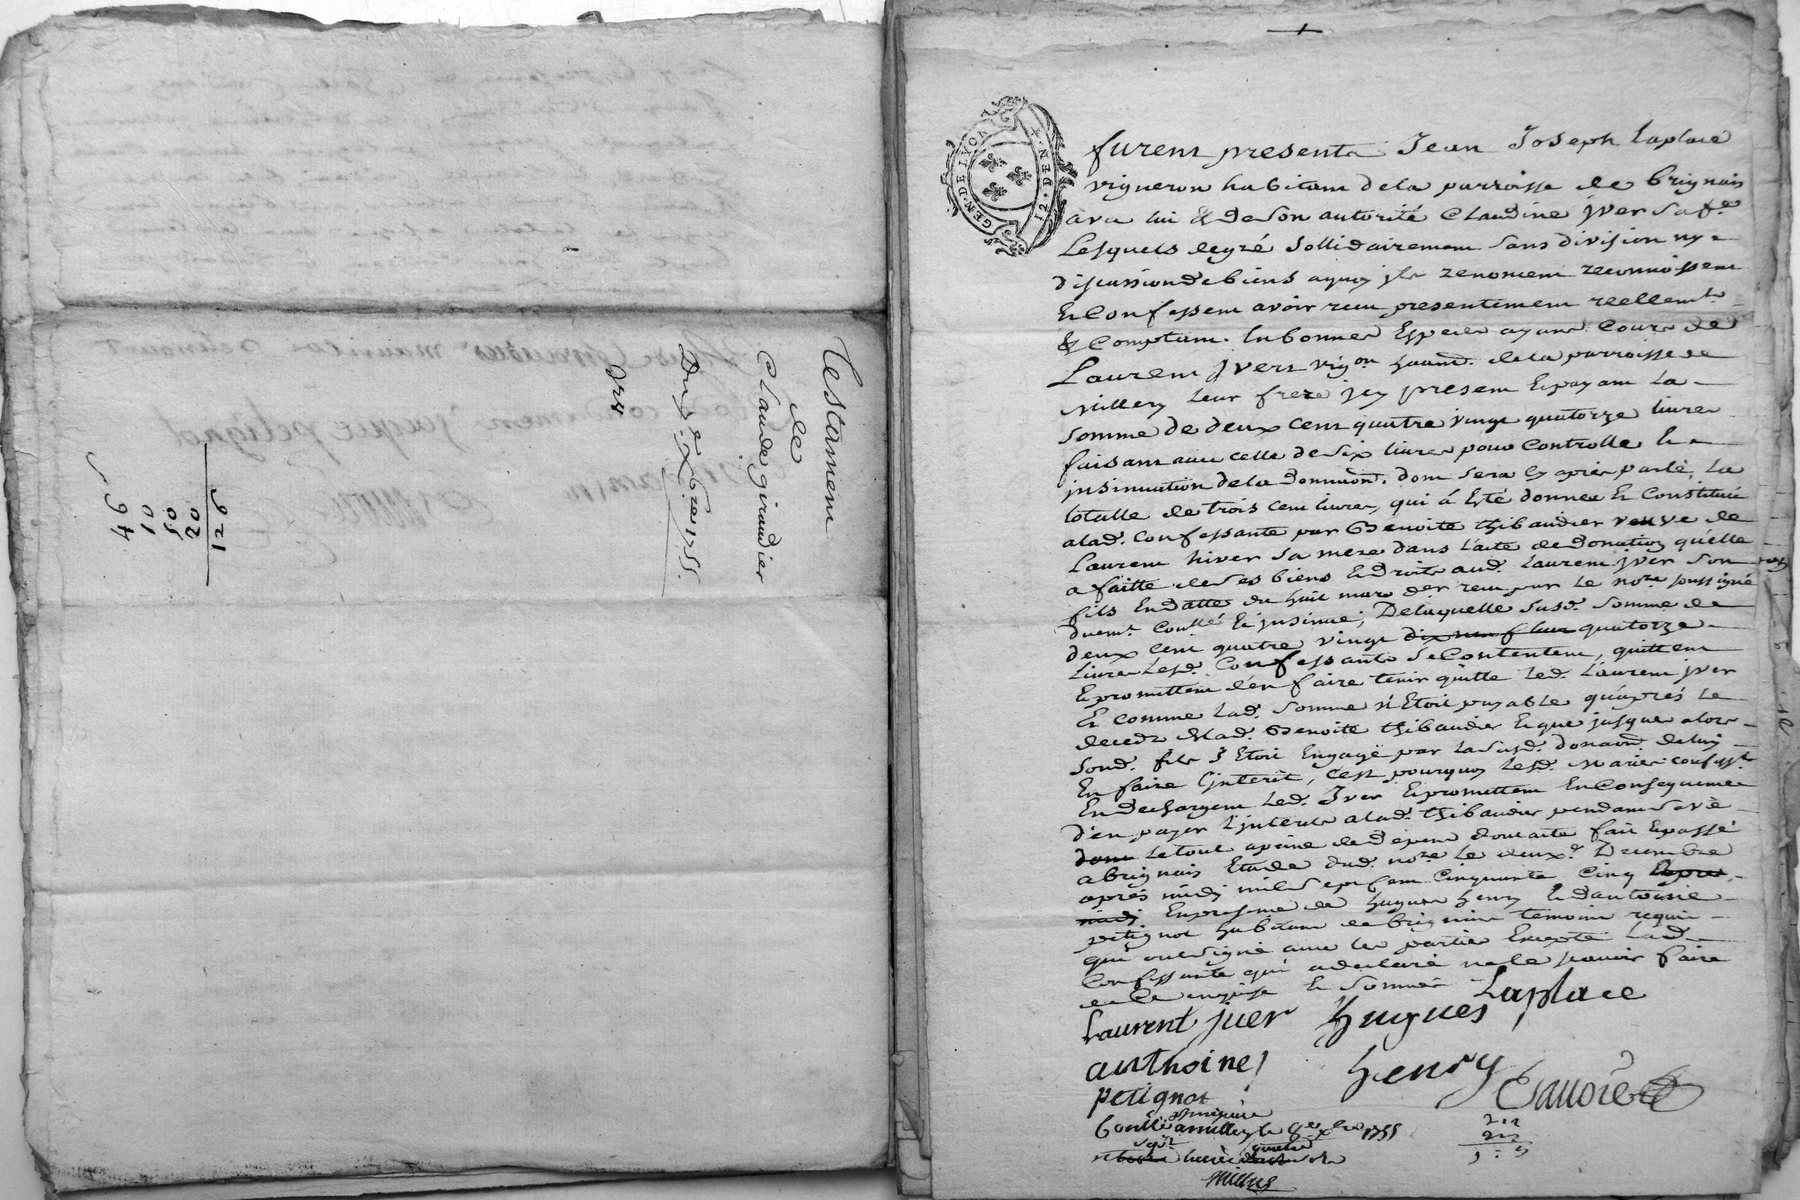 Testament
de
Claude giraudier
Du 3.e Xbre 1755.
126
20
50
10
46
GEN · DE LYON
12 · DEN · X
furent presents Jean Joseph Laplace
vigneron habitant dela parroisse de brignais
avec lui & de son autorité Claudine jver sa fe.
Lesquels degré sollidairement sans division ny
discussion de biens aquoy jls renoncent reconnoissent
Et Confessent avoir reçu presentement reellemt.
& Comptant. En bonnes Especes ayant Cours de
Laurent jvert vigon. habit. de la parroisse de
Millery Leur frere jcy present Et payant La
somme de deux cent quatre vingt quatorze livres
faisant avec celle de six livres pour Controlle &
jnsinuation dela donnaon. dont sera cy aprés parlé, La
totalle de trois cent livres, qui á Eté donnée Et Constituée
alad. Confessante par Benoite thibaudier veuve de
Laurent hiver sa mere dans L'acte de donation qu'elle
a faitte de ses biens Et droits aud. Laurent jver son
fils En datte du huit mars der. reçu par Le nore. soussigné
duemt. Contllé Et jnsinué; De laquelle susd. somme de
deux cent quatre vingt dix neuf livres quatorze
Livres Lesd. Confessants se Contentent, quittent
Et promettent d'en faire tenir quitte Led. Laurent jver
Et comme Lad. somme n'Etoit payable qu'aprés Le
deceds de lad. Benoite thibaudier Et que jusque alors
sond. fils s'Etoit Engagé par La susd. donaon. de luy
En faire L'jnterêt, c'est pourquoy Lesd. mariés confessts.
En dechargent Led. Jver Et promettent En Consequence
d'en payer L'jnterets alad. thibaudier pendant sa vie
dont Le tout apeine de depens dont acte fait Et passé
a brignais Etude dud. nore. Le deuxe. Decembre
aprés midy mil sept cent cinquante cinq apres
midy En presence de hugues henry Et d'antoine
petignot habitans de brignais temoins requis
qui ont signé avec les parties Excepté Lad.
Confessante qui a declaré ne le sçavoir faire
de ce enquise Et sommée Laplace
Laurent jver hugues
anthoine henry
petignot
Contllé a millery le 8e. xbre 1755